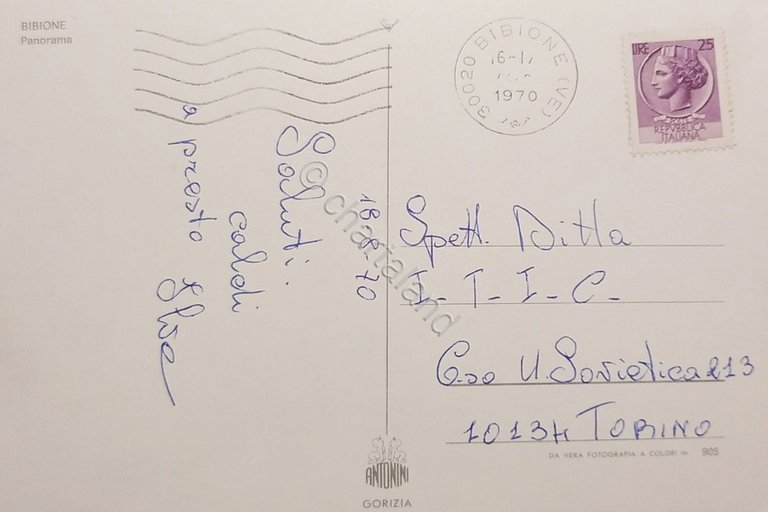 BIBIONE
Panorama
30020 BIBIONE (VE)
1970
LIRE 25
POSTE
REPVBBLICA
ITALIANA
18 8 70
Saluti.
caldi
a presto
© chartaland
Spett. Ditta
I-T-I-C-
C.so U. Sovietica 213
10134 TORINO
DA VERA FOTOGRAFIA A COLORI No. 905
ANTONINI
GORIZIA